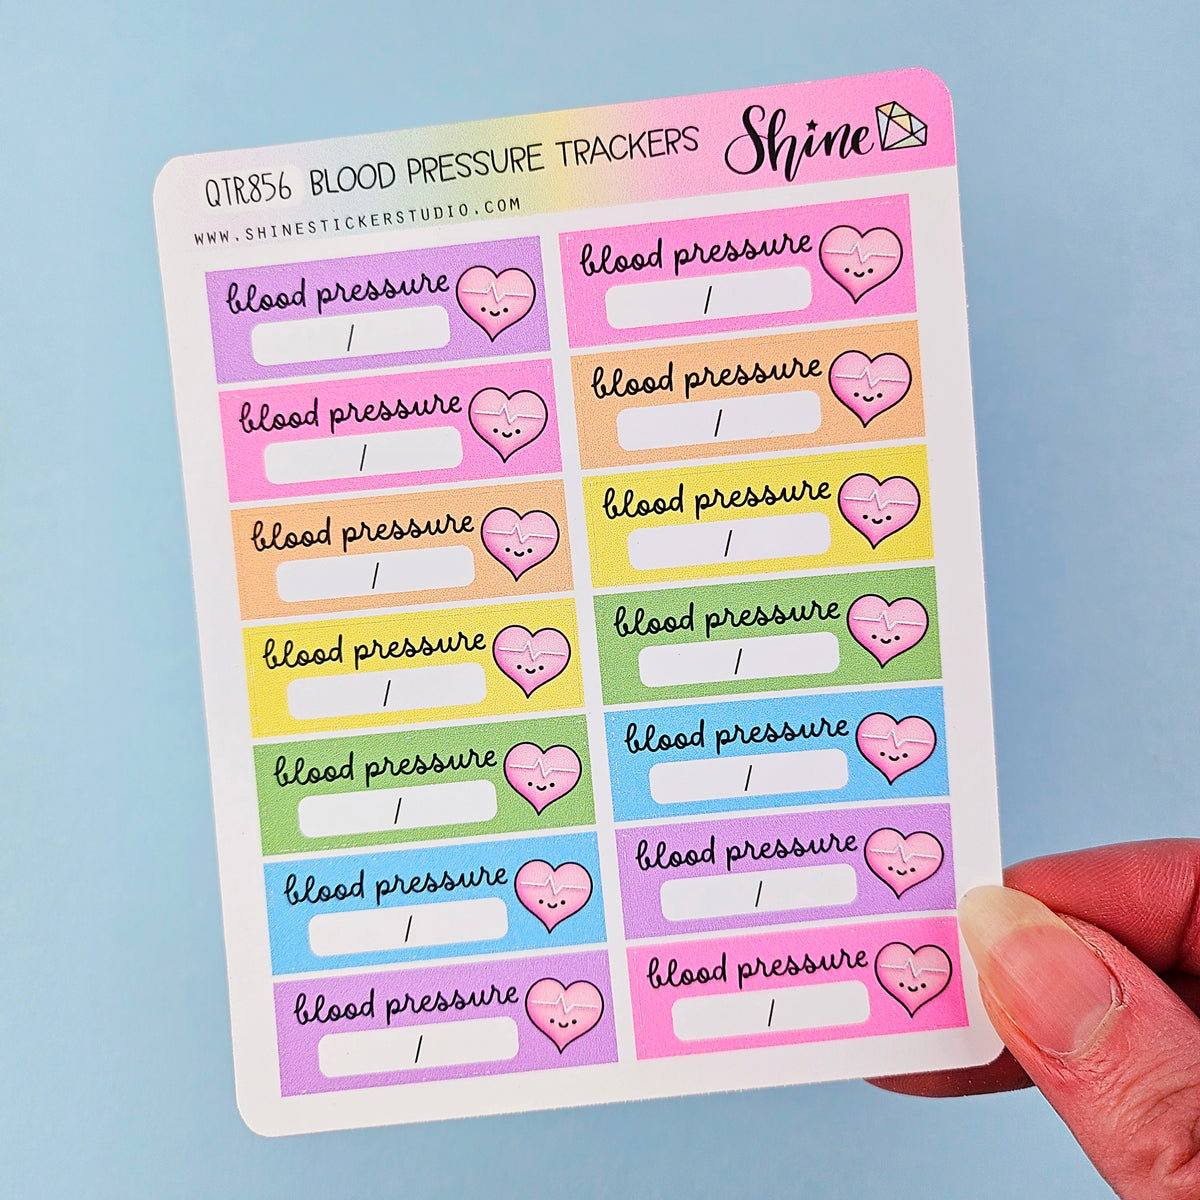 QTR856 BLOOD PRESSURE TRACKERS
Shine
WWW.SHINESTICKERSTUDIO.COM
blood pressure
/
blood pressure
/
blood pressure
/
blood pressure
/
blood pressure
/
blood pressure
/
blood pressure
/
blood pressure
/
blood pressure
/
blood pressure
/
blood pressure
/
blood pressure
/
blood pressure
/
blood pressure
/